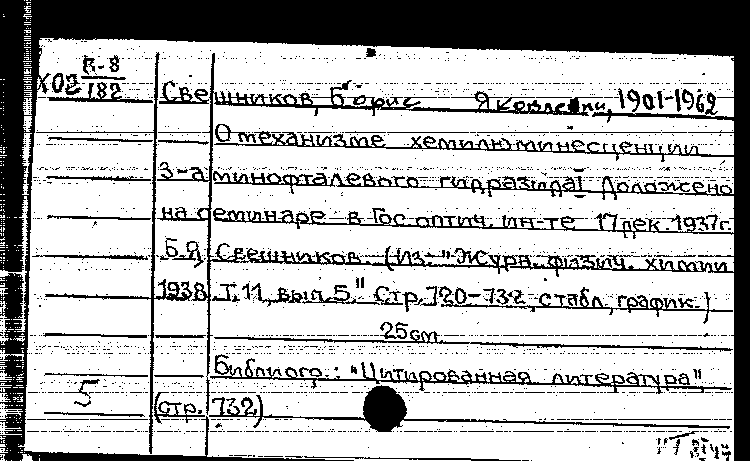 Х02 В-8
182
Свешников, Борис Яковлевич, 1901-1962
О механизме хемилюминесценции
3-аминофталевого гидразида! Доложено
на семинаре в Гос. оптич. ин-те 17 дек. 1937г.
Б.Я. Свешников. (Из: "Журн. физич. химии
1938. Т. 11, вып. 5." Стр. 720-732, с табл., график.)
25 см.
Библиогр.: "Цитированная литература"
(стр. 732)
5